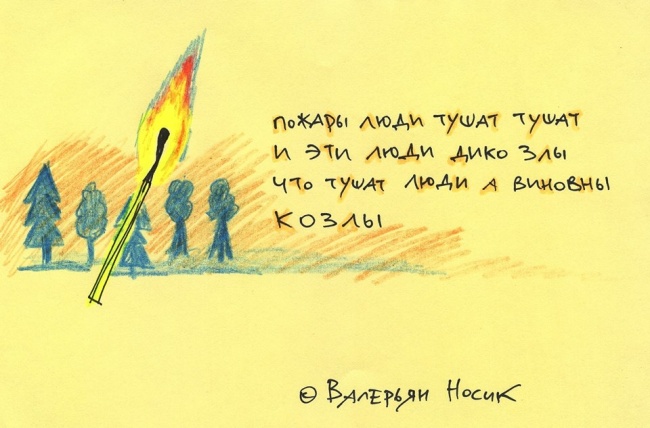 пожары люди тушат тушат
и эти люди дико злы
что тушат люди а виновны
козлы
© Валерьян Носик